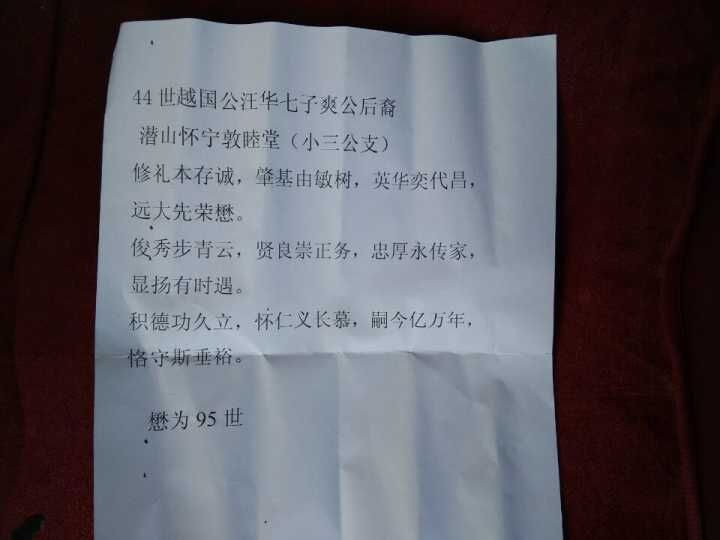 44世越国公汪华七子爽公后裔
潜山怀宁敦睦堂（小三公支）
修礼本存诚，肇基由敏树，英华奕代昌，
远大先荣懋。
俊秀步青云，贤良崇正务，忠厚永传家，
显扬有时遇。
积德功久立，怀仁义长慕，嗣今亿万年，
恪守斯垂裕。
懋为95世